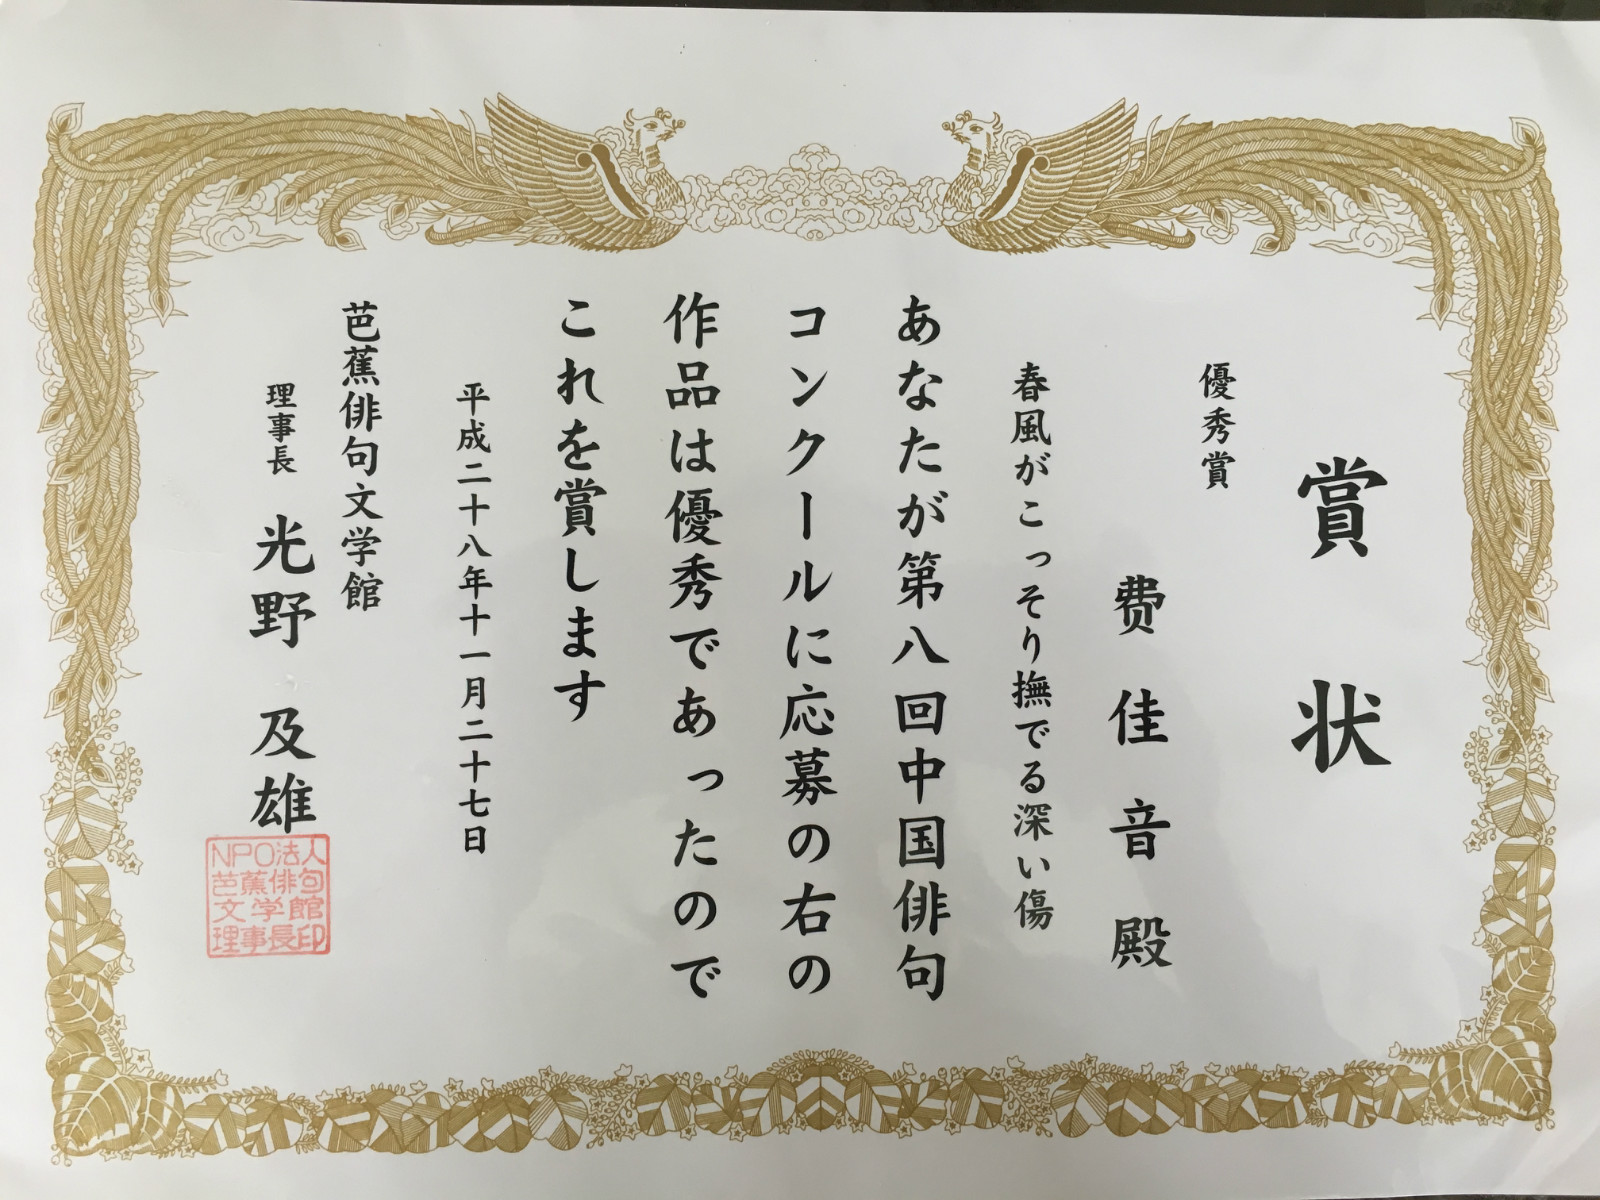 賞状
優秀賞
费佳音殿
春風がこっそり撫でる深い傷
あなたが第八回中国俳句
コンクールに応募の右の
作品は優秀であったので
これを賞します
平成二十八年十一月二十七日
芭蕉俳句文学館
理事長 光野及雄
NPO法人
芭蕉俳句
文学館
理事長印